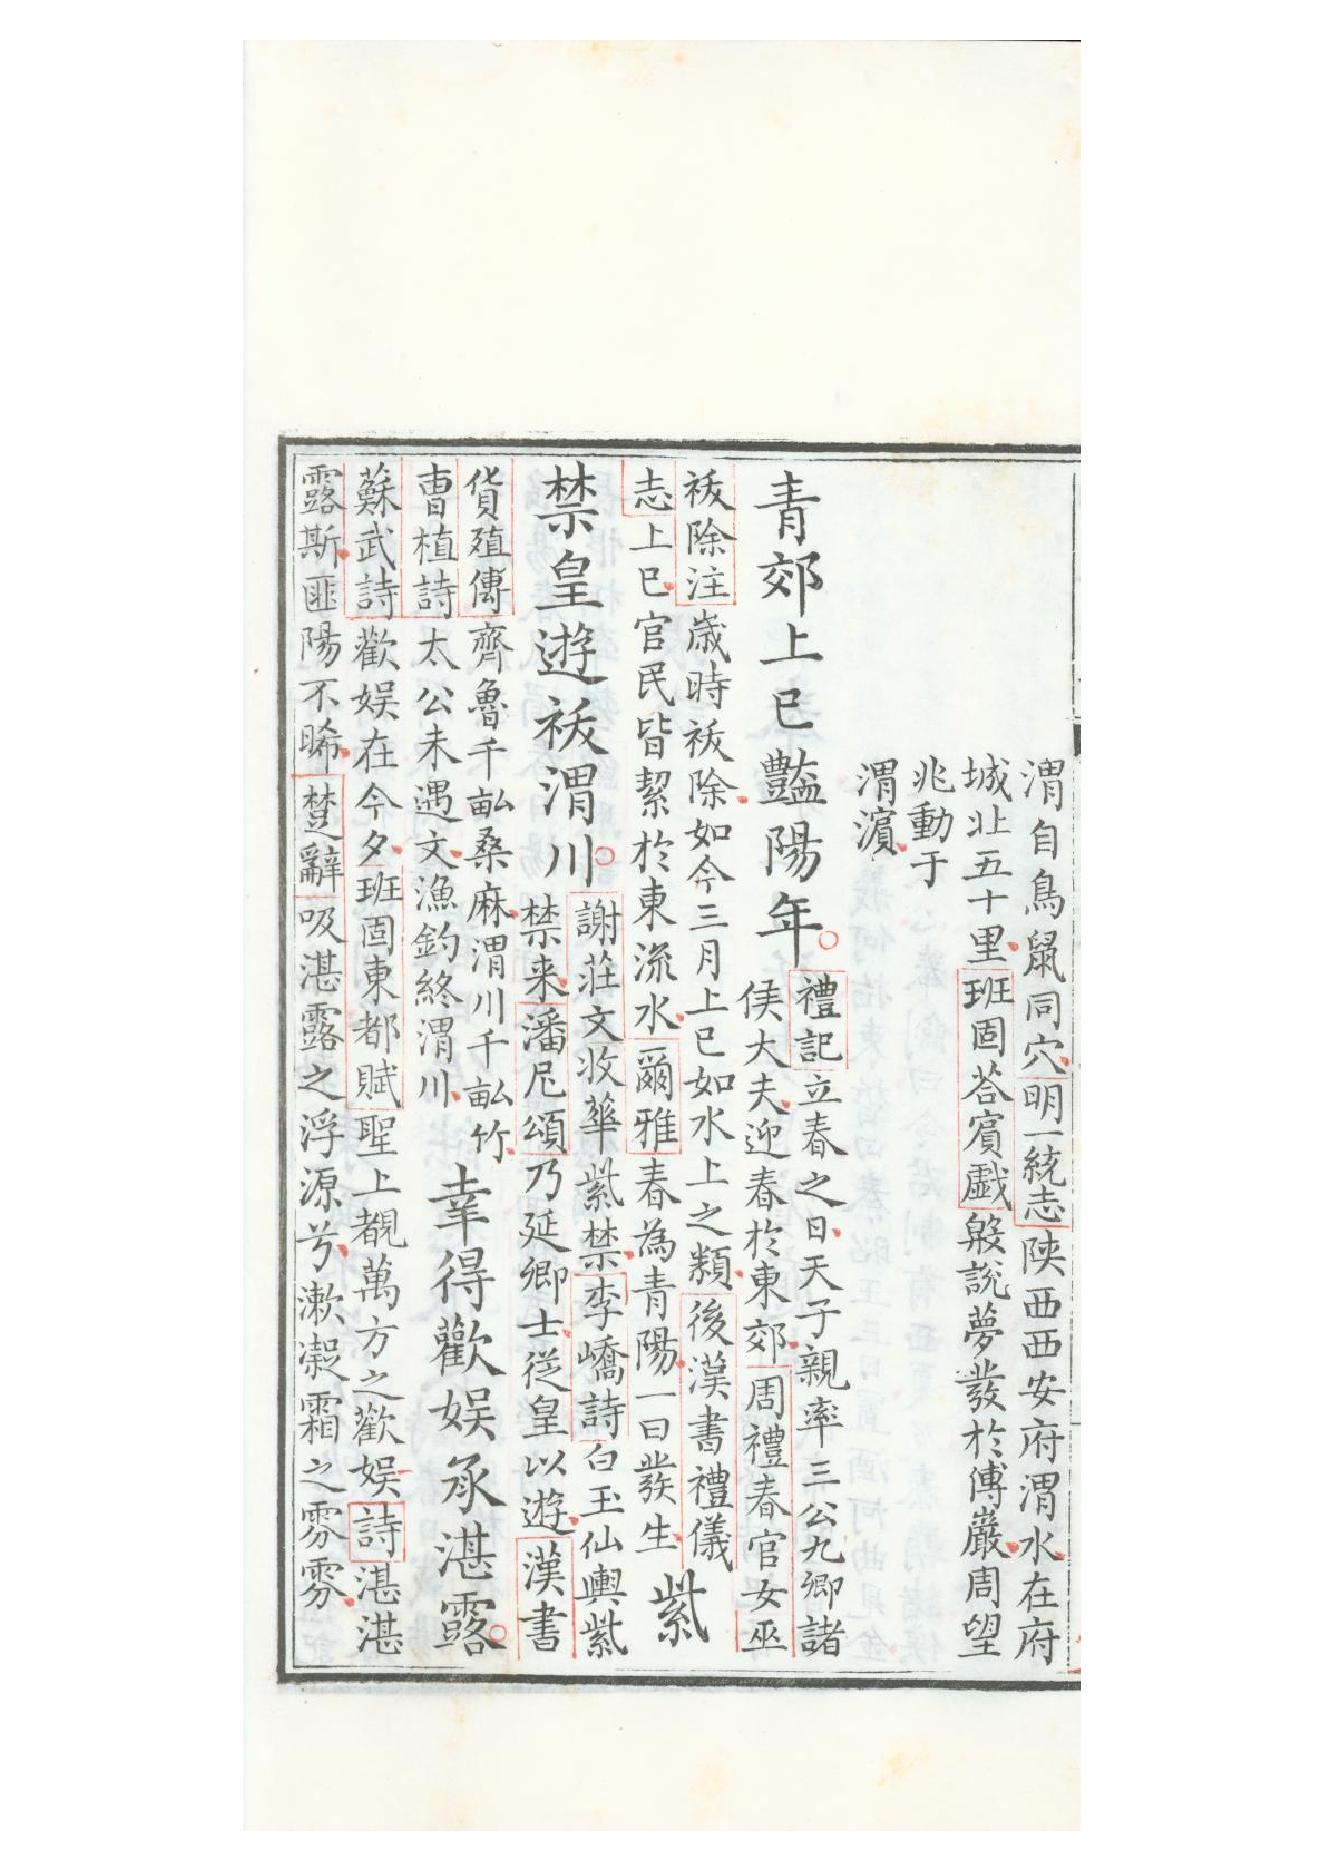 渭自鳥鼠同穴明一統志陝西西安府渭水在府
城北五十里班固荅賓戲殷說夢發於傅巖周望
兆動于
渭濱
青郊上巳豔陽年
禮記立春之日天子親率三公九卿諸
侯大夫迎春於東郊周禮春官女巫
祓除注歲時祓除如今三月上巳如水上之類後漢書禮儀
志上巳官民皆絜於東流水爾雅春為青陽一曰發生
紫
禁皇遊祓渭川
謝莊文收華紫禁李嶠詩白玉仙輿紫
禁来潘尼頌乃延卿士從皇以遊漢書
貨殖傳齊魯千畝桑麻渭川千畝竹
曹植詩太公未遇文漁釣終渭川
幸得歡娱承湛露
蘇武詩歡娱在今夕班固東都賦聖上覩萬方之歡娱詩湛湛
露斯匪陽不晞楚辭吸湛露之浮源兮漱凝霜之雰雰